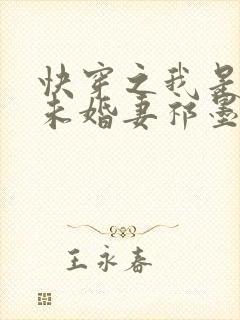 快穿之我是
未婚妻祁墨
王永春